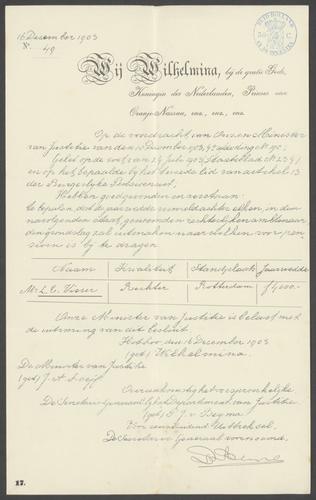 16 December 1903
N. 49
Wij Wilhelmina, bij de gratie Gods,
Koningin der Nederlanden, Prinses van
Oranje-Nassau, enz., enz., enz.
Op de voordracht van Onzen Minister
van Justitie van den 10 December 1903,
Gelet op de wet van 14 Juli 1903 (Staatsblad N.
en op het bepaalde bij het tweede lid van artikel 13
der Burgerlijke Pensioenwet,
Hebben goedgevonden en verstaan:
te bepalen, dat de jaarwedde vermeld achter den, in den
navolgenden staat, genoemden rechterlijken ambtenaar
den grondslag zal uitmaken naar welken voor pen-
sioen is bij te dragen
Naam Kwaliteit Standplaats Jaarwedde
Mr. L. E. Visser Rechter Rotterdam f
Onze Minister van Justitie is belast met
de uitvoering van dit besluit.
Het Loo, den 16 December 1903
(get) Wilhelmina.
De Minister van Justitie
(get) J. A. Loeff
Overeenkomstig het oorspronkelijke
De Secretaris-Generaal bij het Departement van Justitie
(get)
Voor eensluidend Uittreksel,
De Secretaris Generaal voornoemd,
17.